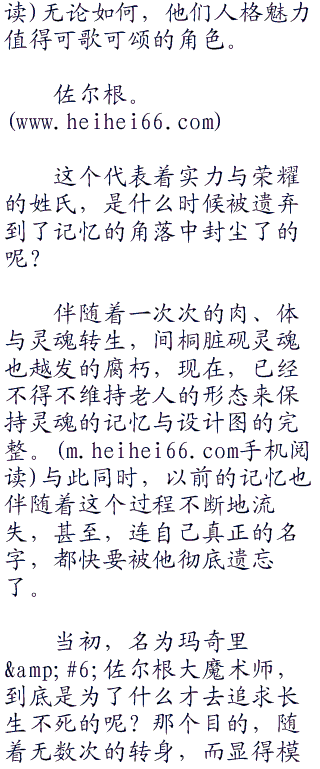 读)无论如何，他们人格魅力
值得可歌可颂的角色。
佐尔根。
(www.heihei66.com)
这个代表着实力与荣耀
的姓氏，是什么时候被遗弃
到了记忆的角落中封尘了的
呢？
伴随着一次次的肉、体
与灵魂转生，间桐脏砚灵魂
也越发的腐朽，现在，已经
不得不维持老人的形态来保
持灵魂的记忆与设计图的完
整。(m.heihei66.com手机阅
读)与此同时，以前的记忆也
伴随着这个过程不断地流
失，甚至，连自己真正的名
字，都快要被他彻底遗忘
了。
当初，名为玛奇里
&amp;#6;佐尔根大魔术师，
到底是为了什么才去追求长
生不死的呢？那个目的，随
着无数次的转身，而显得模